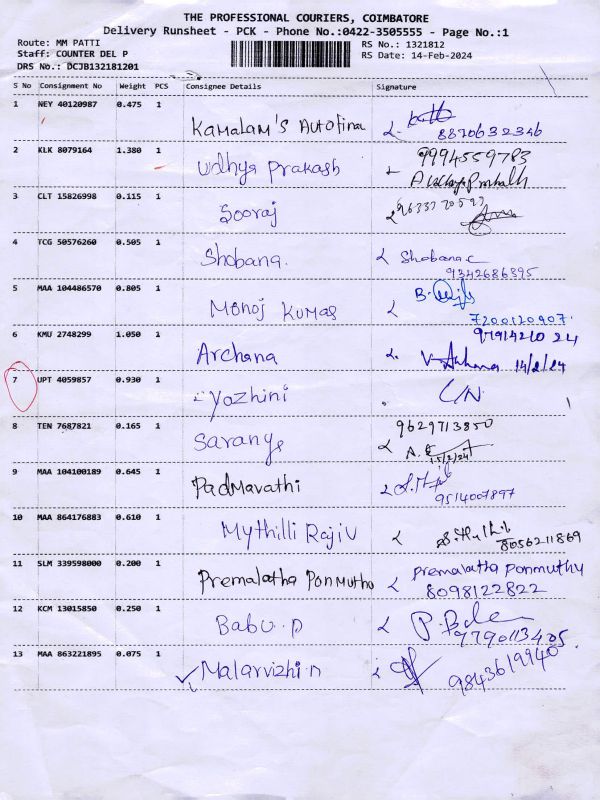 THE PROFESSIONAL COURIERS, COIMBATORE
Delivery Runsheet - PCK - Phone No.:0422-3505555 - Page No.:1
Route: MM PATTI
Staff: COUNTER DEL P
DRS No.: DCJB132181201
RS No.: 1321812
RS Date: 14-Feb-2024
S No Consignment No Weight PCS Consignee Details Signature
1 NEY 40120987 0.475 1
Kamalam's Autofina 8870632346
2 KLK 8079164 1.380 1
Udhya prakash 9994559783
3 CLT 15826998 0.115 1
Sooraj
4 TCG 50576260 0.505 1
Shobana. Shobana c
9342686395
5 MAA 104486570 0.805 1
Manoj Kumar
7200120907
6 KMU 2748299 1.050 1
Archana 14/2/24
7 UPT 4059857 0.930 1
Yazhini
8 TEN 7687821 0.165 1
Saranya 9629713850
15/2/24
9 MAA 104100189 0.645 1
Padmavathi
9514007897
10 MAA 864176883 0.610 1
Mythilli Rajiv
8056211869
11 SLM 339598000 0.200 1
Premalatha Ponmutho Premalatha Ponmuthy
8098122822
12 KCM 13015850 0.250 1
Babu.p
9790113405
13 MAA 863221895 0.075 1
Malarvizhi n 9843619940